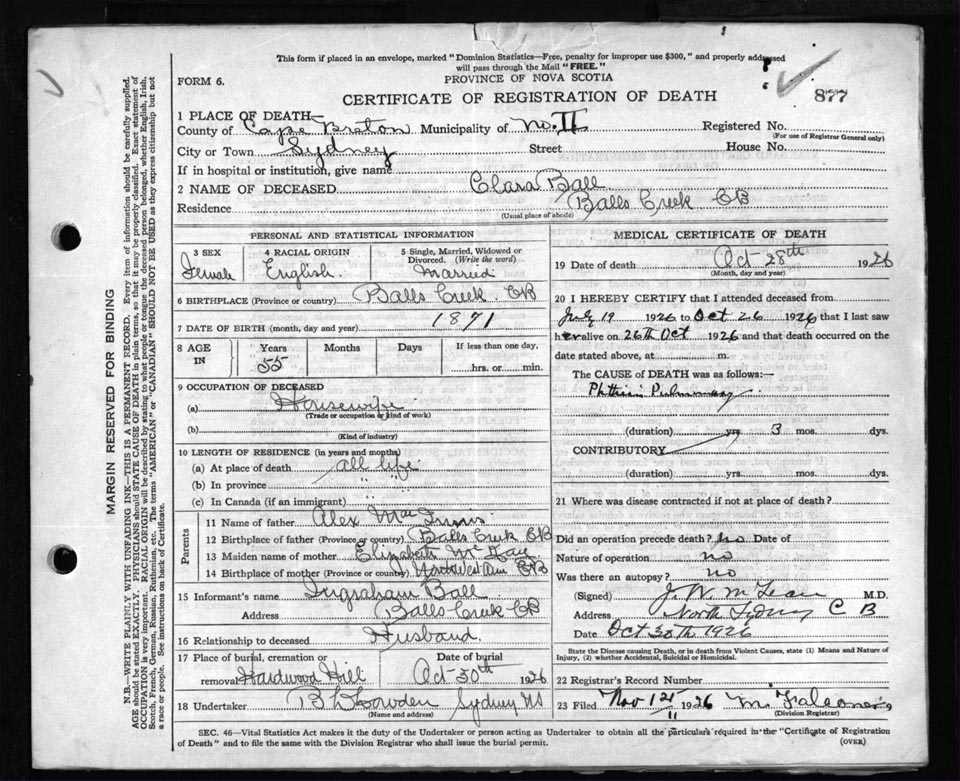 This form if placed in an envelope, marked "Dominion Statistics—Free, penalty for improper use $300," and properly addressed
will pass through the Mail "FREE."
FORM 6.
PROVINCE OF NOVA SCOTIA
CERTIFICATE OF REGISTRATION OF DEATH
877
1 PLACE OF DEATH—
County of Cape Breton Municipality of No. II Registered No.
(For use of Registrar General only)
City or Town Sydney Street House No.
If in hospital or institution, give name
2 NAME OF DECEASED Clara Ball
Residence Balls Creek CB
(Usual place of abode)
PERSONAL AND STATISTICAL INFORMATION
3 SEX Female
4 RACIAL ORIGIN English
5 Single, Married, Widowed or Divorced. (Write the word) Married
6 BIRTHPLACE (Province or country) Balls Creek. CB
7 DATE OF BIRTH (month, day and year) 1871
8 AGE IN Years 55 Months Days If less than one day, hrs. or min.
9 OCCUPATION OF DECEASED
(a) Housewife
(Trade or occupation or kind of work)
(b)
(Kind of industry)
10 LENGTH OF RESIDENCE (in years and months)
(a) At place of death all life
(b) In province " "
(c) In Canada (if an immigrant)
Parents
11 Name of father Alex MacInnis
12 Birthplace of father (Province or country) Balls Creek CB
13 Maiden name of mother Elizabeth McKay
14 Birthplace of mother (Province or country) Northwest Arm CB
15 Informant's name Ingraham Ball
Address Balls Creek CB
16 Relationship to deceased Husband
17 Place of burial, cremation or removal Hardwood Hill
Date of burial Oct 30th 1926
18 Undertaker Sydney NS
(Name and address)
MEDICAL CERTIFICATE OF DEATH
19 Date of death Oct 28th 1926
(Month, day and year)
20 I HEREBY CERTIFY that I attended deceased from
July 19 1926 to Oct 26 1926 that I last saw
her alive on 26th Oct 1926 and that death occurred on the
date stated above, at m.
The CAUSE of DEATH was as follows:—
Phthisis Pulmonary
(duration) yrs. 3 mos. dys.
CONTRIBUTORY
(duration) yrs. mos. dys.
21 Where was disease contracted if not at place of death?
Did an operation precede death? no Date of
Nature of operation no
Was there an autopsy? no
(Signed) M.D.
Address North Sydney C B
Date Oct 30th 1926
State the Disease causing Death, or in death from Violent Causes, state (1) Means and Nature of
Injury, (2) whether Accidental, Suicidal or Homicidal.
22 Registrar's Record Number
23 Filed Nov 1st 1926
11
(Division Registrar)
SEC. 46—Vital Statistics Act makes it the duty of the Undertaker or person acting as Undertaker to obtain all the particulars required in the "Certificate of Registration
of Death" and to file the same with the Division Registrar who shall issue the burial permit.
(OVER)
MARGIN RESERVED FOR BINDING
N.B.—WRITE PLAINLY WITH UNFADING INK—THIS IS A PERMANENT RECORD. Every item of information should be carefully supplied.
AGE should be stated EXACTLY. PHYSICIANS should STATE CAUSE OF DEATH in plain terms, so that it may be properly classified. Exact statement of
OCCUPATION is very important. RACIAL ORIGIN will be described by stating to what people or tongue the deceased person belonged, whether English, Irish,
Scotch, French, German, Russian, Ruthenian, etc. The terms "AMERICAN" or "CANADIAN" SHOULD NOT BE USED as they express citizenship but not
a race or people. See instructions on back of Certificate.